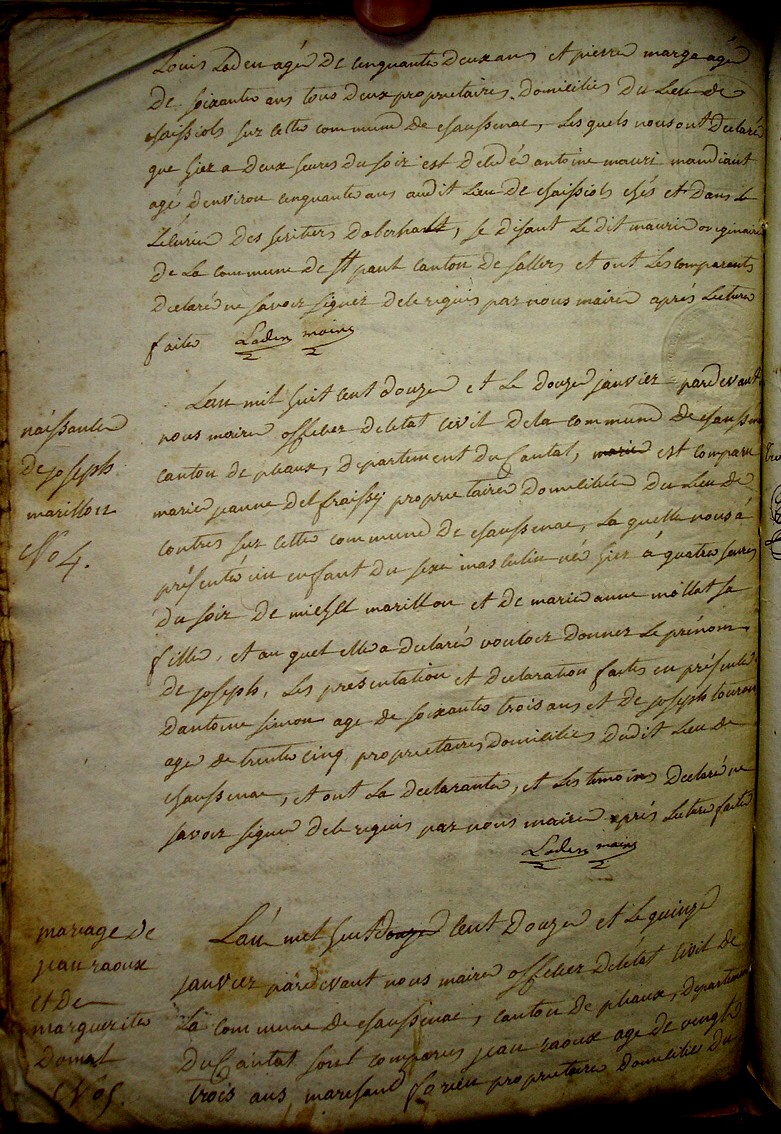 Louis Laden agé de cinquante deux ans et pierre marge agé
de soixante ans tous deux proprietaires domiciliés du Lieu de
chaissiols sur cette commune de chaussenac, Les quels nous ont declaré
que hier a deux heures du soir est décédé antoine mauri mandiant
agé d'environ cinquante ans audit Lieu de chaissiols chés et dans
des heritiers, se disant le dit mauri originaire
de La commune de St paul canton de Sallers et ont Les comparants
declaré ne savoir signer de ce requis par nous maire après Lecture
faite Laden maire
naissance
de joseph
marillou
No 4.
L'an mil huit cent douze et Le douze janvier pardevant
nous maire officier de letat Civil de la commune de chaussenac
canton de pleaux, departement du Cantal, marie est comparu
marie jeanne delfraissy proprietaire domiciliée du Lieu de
contres sur cette commune de chaussenac, La quelle nous à
présenté un enfant du sexe masculin né hier à quatre heures
du soir de michel marillou et de marie anne mollat sa
fille, et au quel elle a declaré vouloir donner Le prénom
de joseph, Les presentation et declaration faites en présence
d'antoine simon age de soixante trois ans et de joseph
age de trente cinq proprietaires domiciliés dudit Lieu de
chaussenac, et ont La declarante, et Les temoins declaré ne
savoir signer de ce requis par nous maire après Lecture faite
Laden maire
mariage de
jean raoux
et de
marguerite
domat
No 5.
L'an mil huit douze cent douze et Le quinze
janvier pardevant nous maire officier de letat Civil de
La commune de chaussenac, canton de pleaux, departement
du Cantal sont comparus jean raoux age de vingt
trois ans marchand proprietaire domicilié du